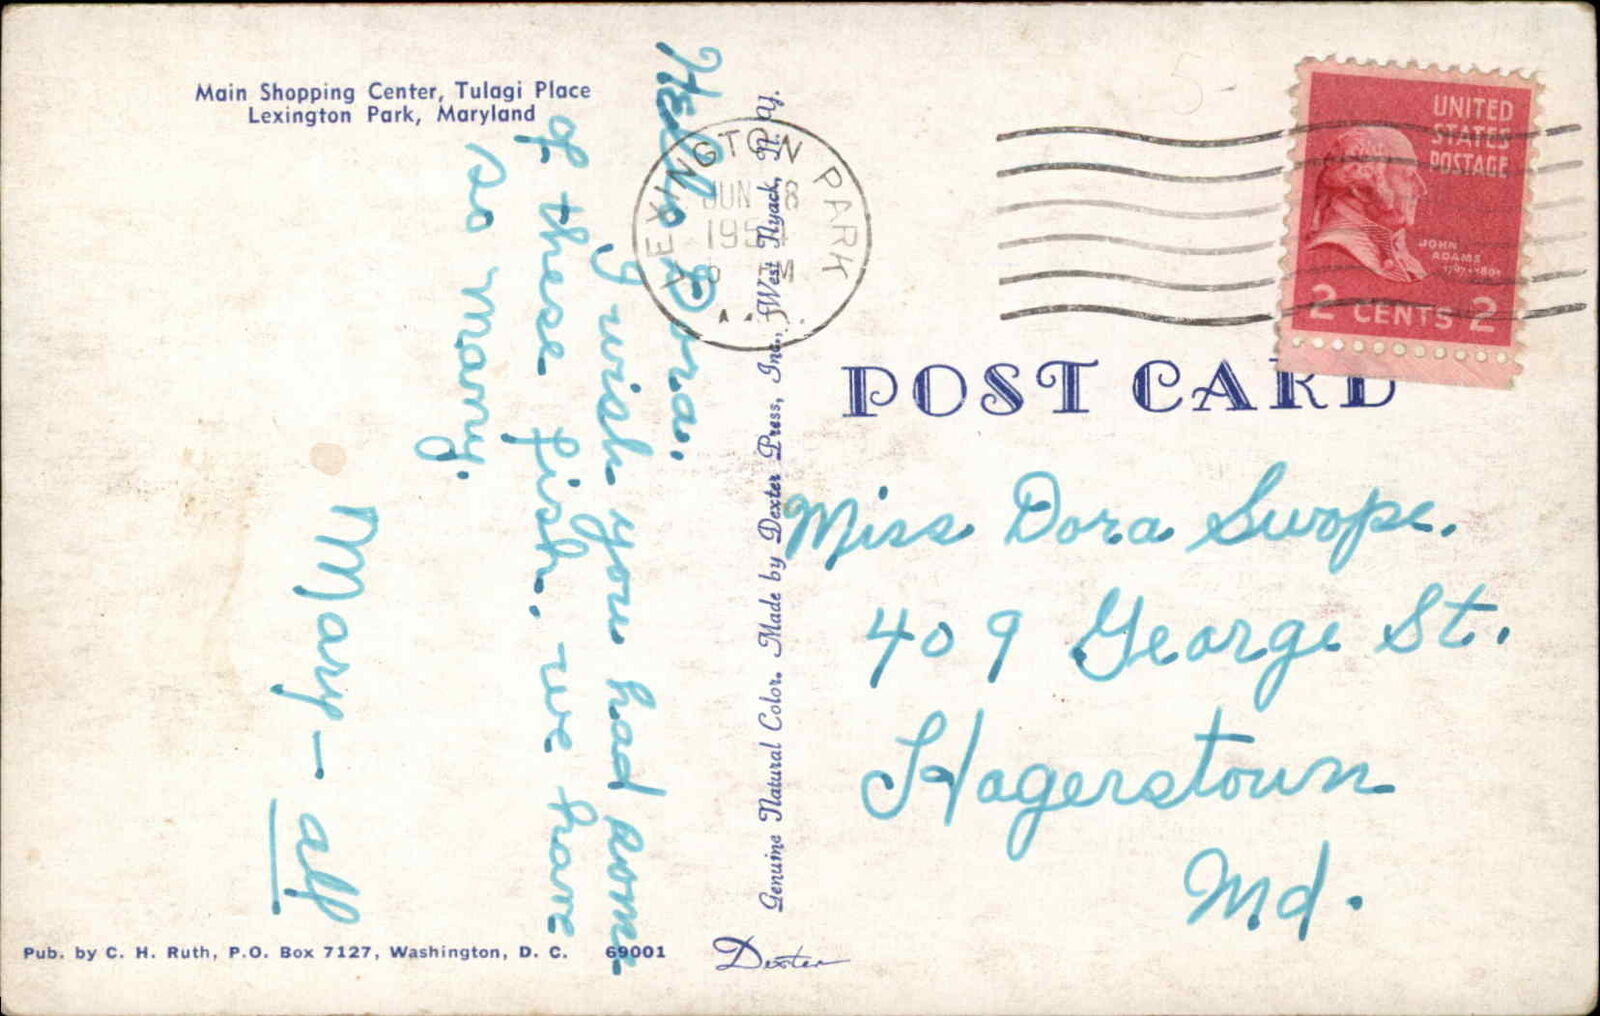 Main Shopping Center, Tulagi Place
Lexington Park, Maryland
Hello Dora.
I wish you had some
of these fish. we have
so many.
Mary - all
Pub. by C. H. Ruth, P.O. Box 7127, Washington, D. C. 69001
Genuine Natural Color. Made by Dexter Press, Inc., West Nyack, N. Y.
Dexter
LEXINGTON PARK
JUN 8
195
M
UNITED
STATES
POSTAGE
JOHN
ADAMS
1797-1801
2 CENTS 2
POST CARD
Miss Dora Swope.
409 George St.
Hagerstown
Md.